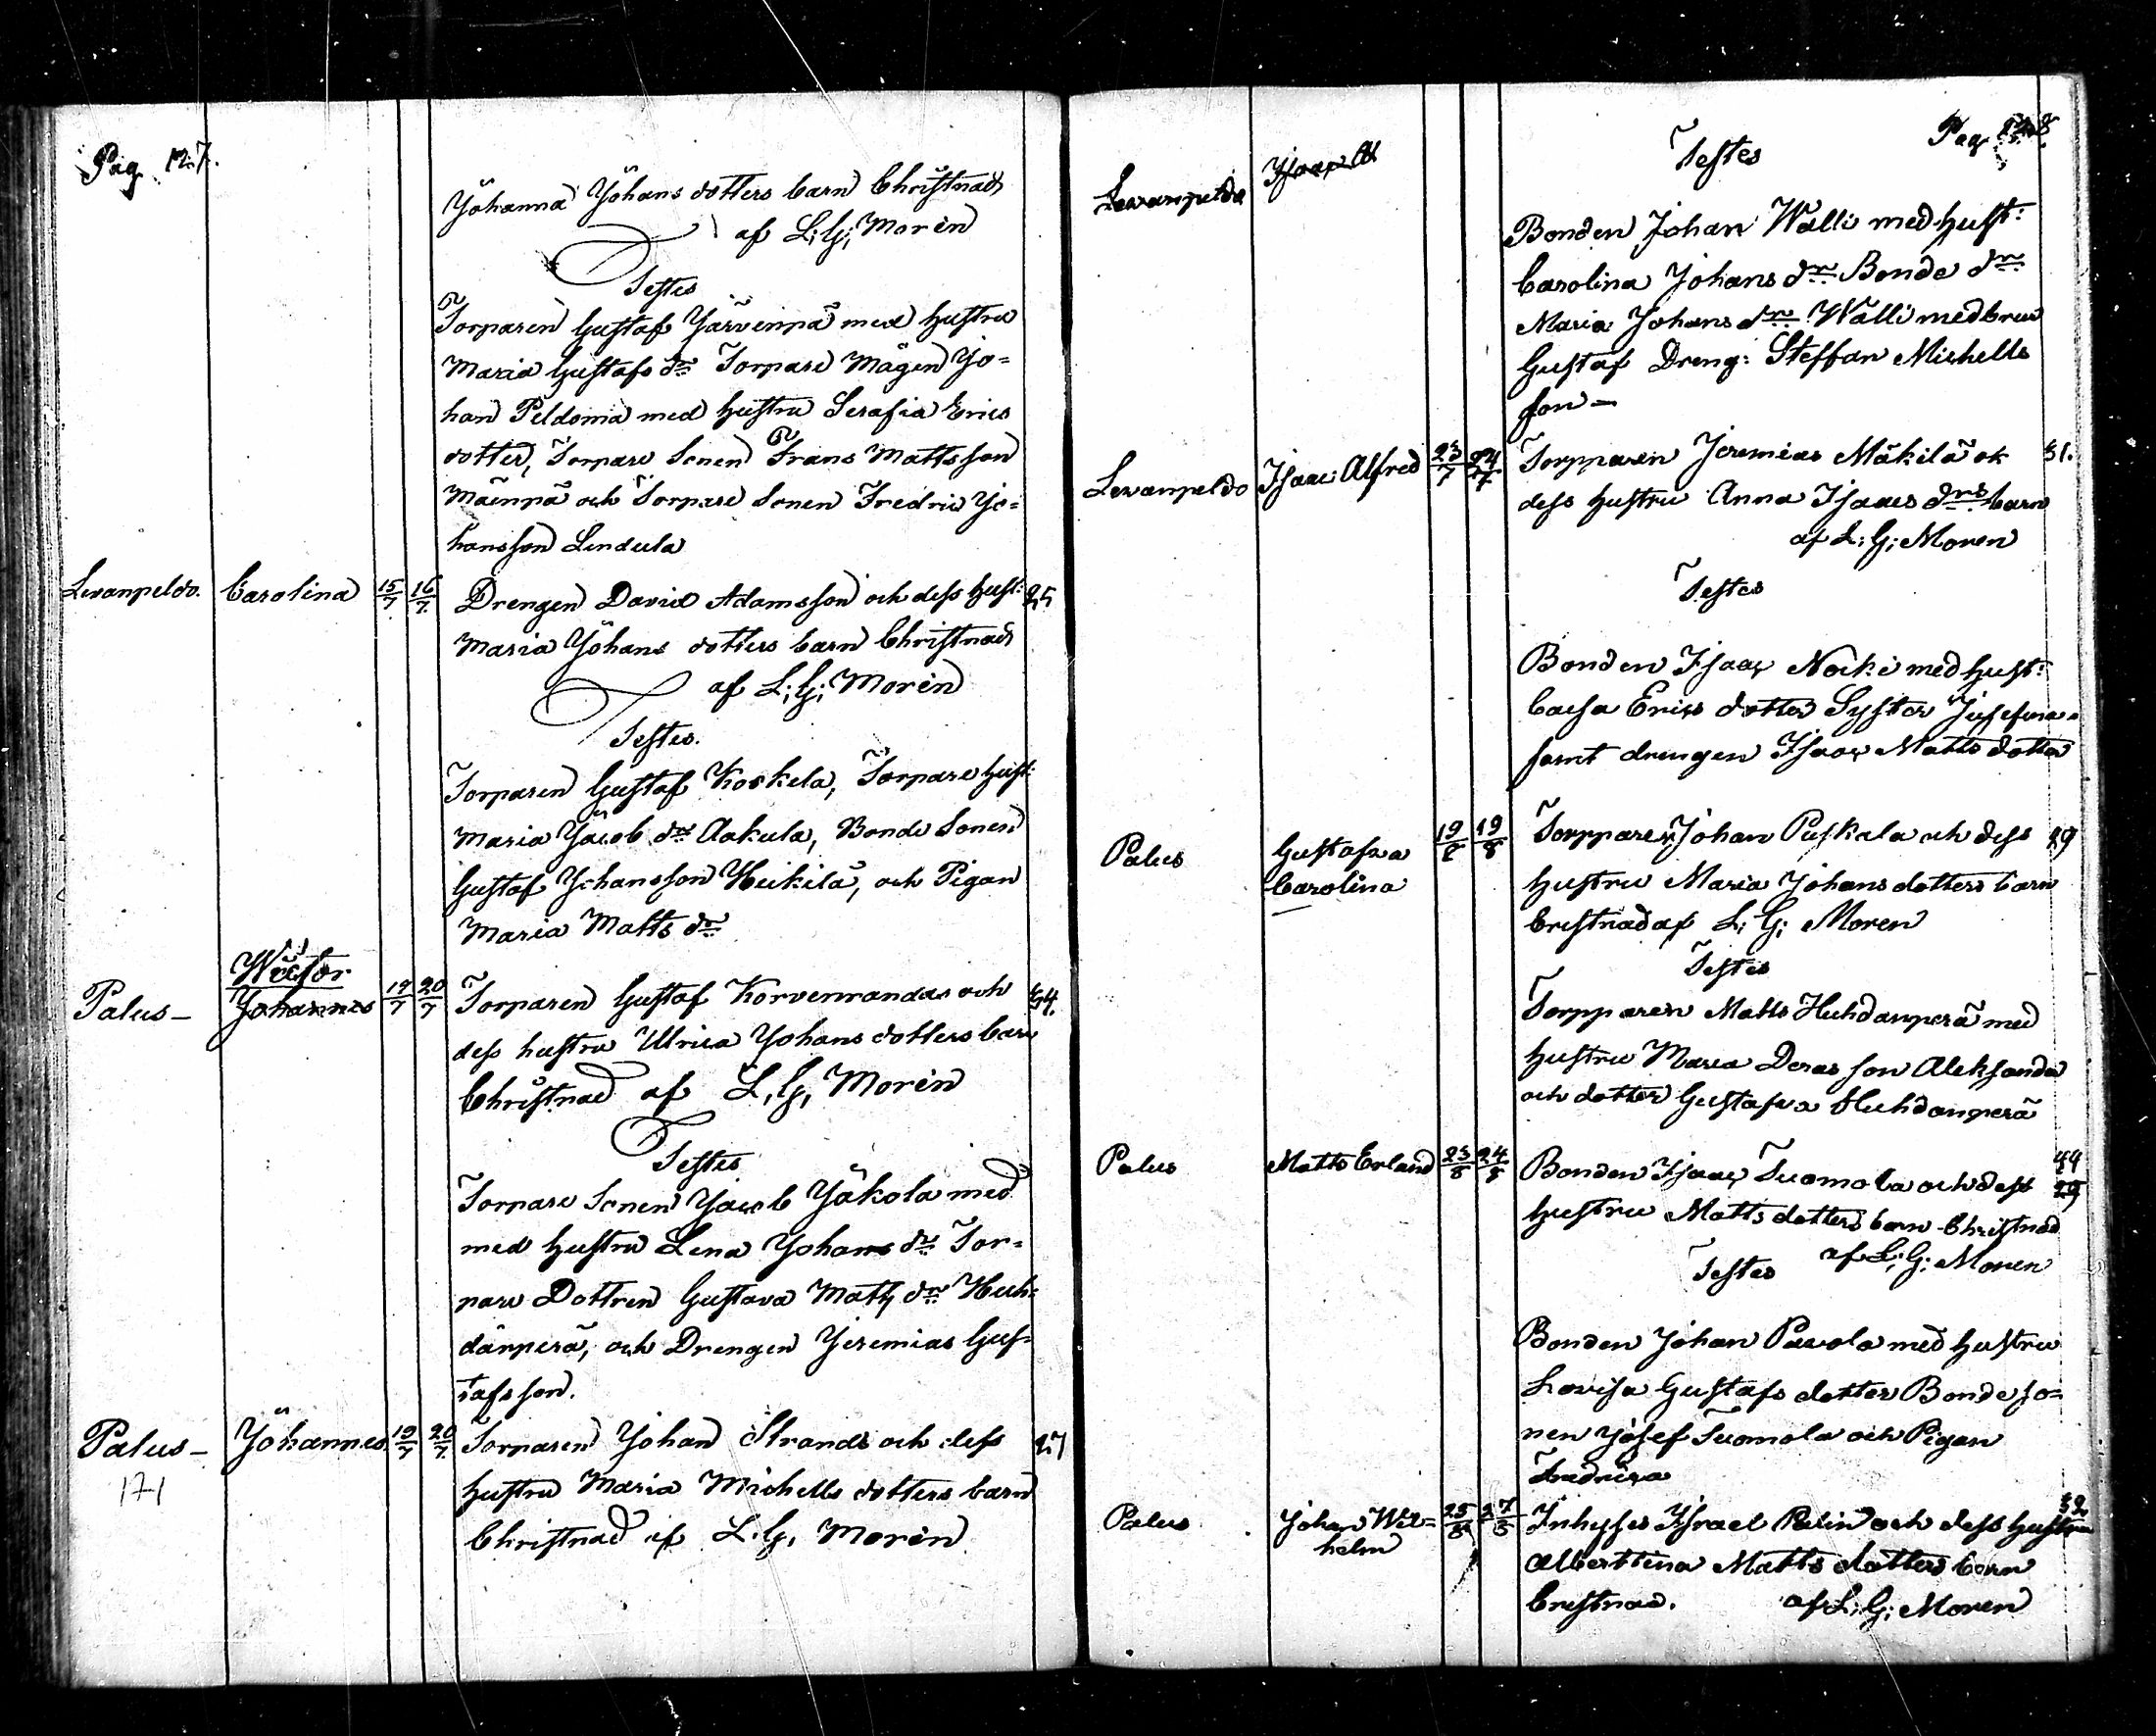 Pag 127.
Johanna Johans dotters barn Christnad
af L; G; Morén
Testes
Torparen Gustaf Järvenpä med hustru
Maria Gustafs dr Torpare Mågen Jo=
han Peldoma med hustru Serafia Erics
dotter, Torpare Sonen Frans Mattsson
Mäenpä och Torpare Sonen Fredric Jo=
hansson Lindula
Levanpeldo. Carolina 15/7 16/7 Drengen David Adamsson och dess hust: 25
Maria Johans dotters barn Christnad
af L; G; Morén
Testes.
Torparen Gustaf Koskela, Torpare hust:
Maria Jacob dr Aakula, Bonde Sonen
Gustaf Johansson Heikilä, och Pigan
Maria Matts dr
Palus – Wictor Johannes 19/7 20/7 Torparen Gustaf Korvenrandas och 34.
dess hustru Ulrica Johans dotters barn
Christnad af L, G, Morén
Testes
Torpare Sonen Jacob Jäkola med
med hustru Lena Johans dr Tor=
pare Dottren Gustava Matts dr Huh=
danperä, och Drengen Jeremias Gus=
tafsson.
Palus – Johannes 19/7 20/7 Torparen Johan Strands och dess 27
hustru Maria Michells dotters barn
Christnad af L. G, Morén
171
Pag 128.
Levanpeldo Isaac Al
Testes
Bonden Johan Walli med hust:
Carolina Johans dr Bonde dr
Maria Johans dr Walli med brur
Gustaf Dreng: Steffan Michells
son –
Levanpeldo Isaac Alfred 23/7 24/7 Torpparen Jeremias Mäkilä ok 31.
dess hustru Anna Isaacs drs barn
af L; G; Moren
Testes
Bonden Isaac Nocki med hust:
Caesa Erics dotter Syster Josefina
samt drengen Isaac Matts dotter
Palus Gustafva Carolina 19/8 19/8 Torpparen Johan Puskala och dess 29
hustru Maria Johans dotters barn
Crestnad af L; G; Moren
Testes
Torpparen Matts Huhdanperä med
hustru Maria Deras son Aleksander
och dotter Gustafva Huhdanperä
Palus Matts Erland 23/8 24/8 Bonden Isaac Tuomola och dess 44 29
hustru Matts dotters barn Christnad
af L; G; Moren
Testes
Bonden Johan Pavola med hustru
Lovisa Gustafs dotter Bonde so=
nen Josef Tuomola och Pigan
Fredrica
Palus Johan Wil=helm 25/8 27/8 Inhyses Israel Palin och dess hustru 32
Albertina Matts dotters barn
Crestnad. af L; G; Moren